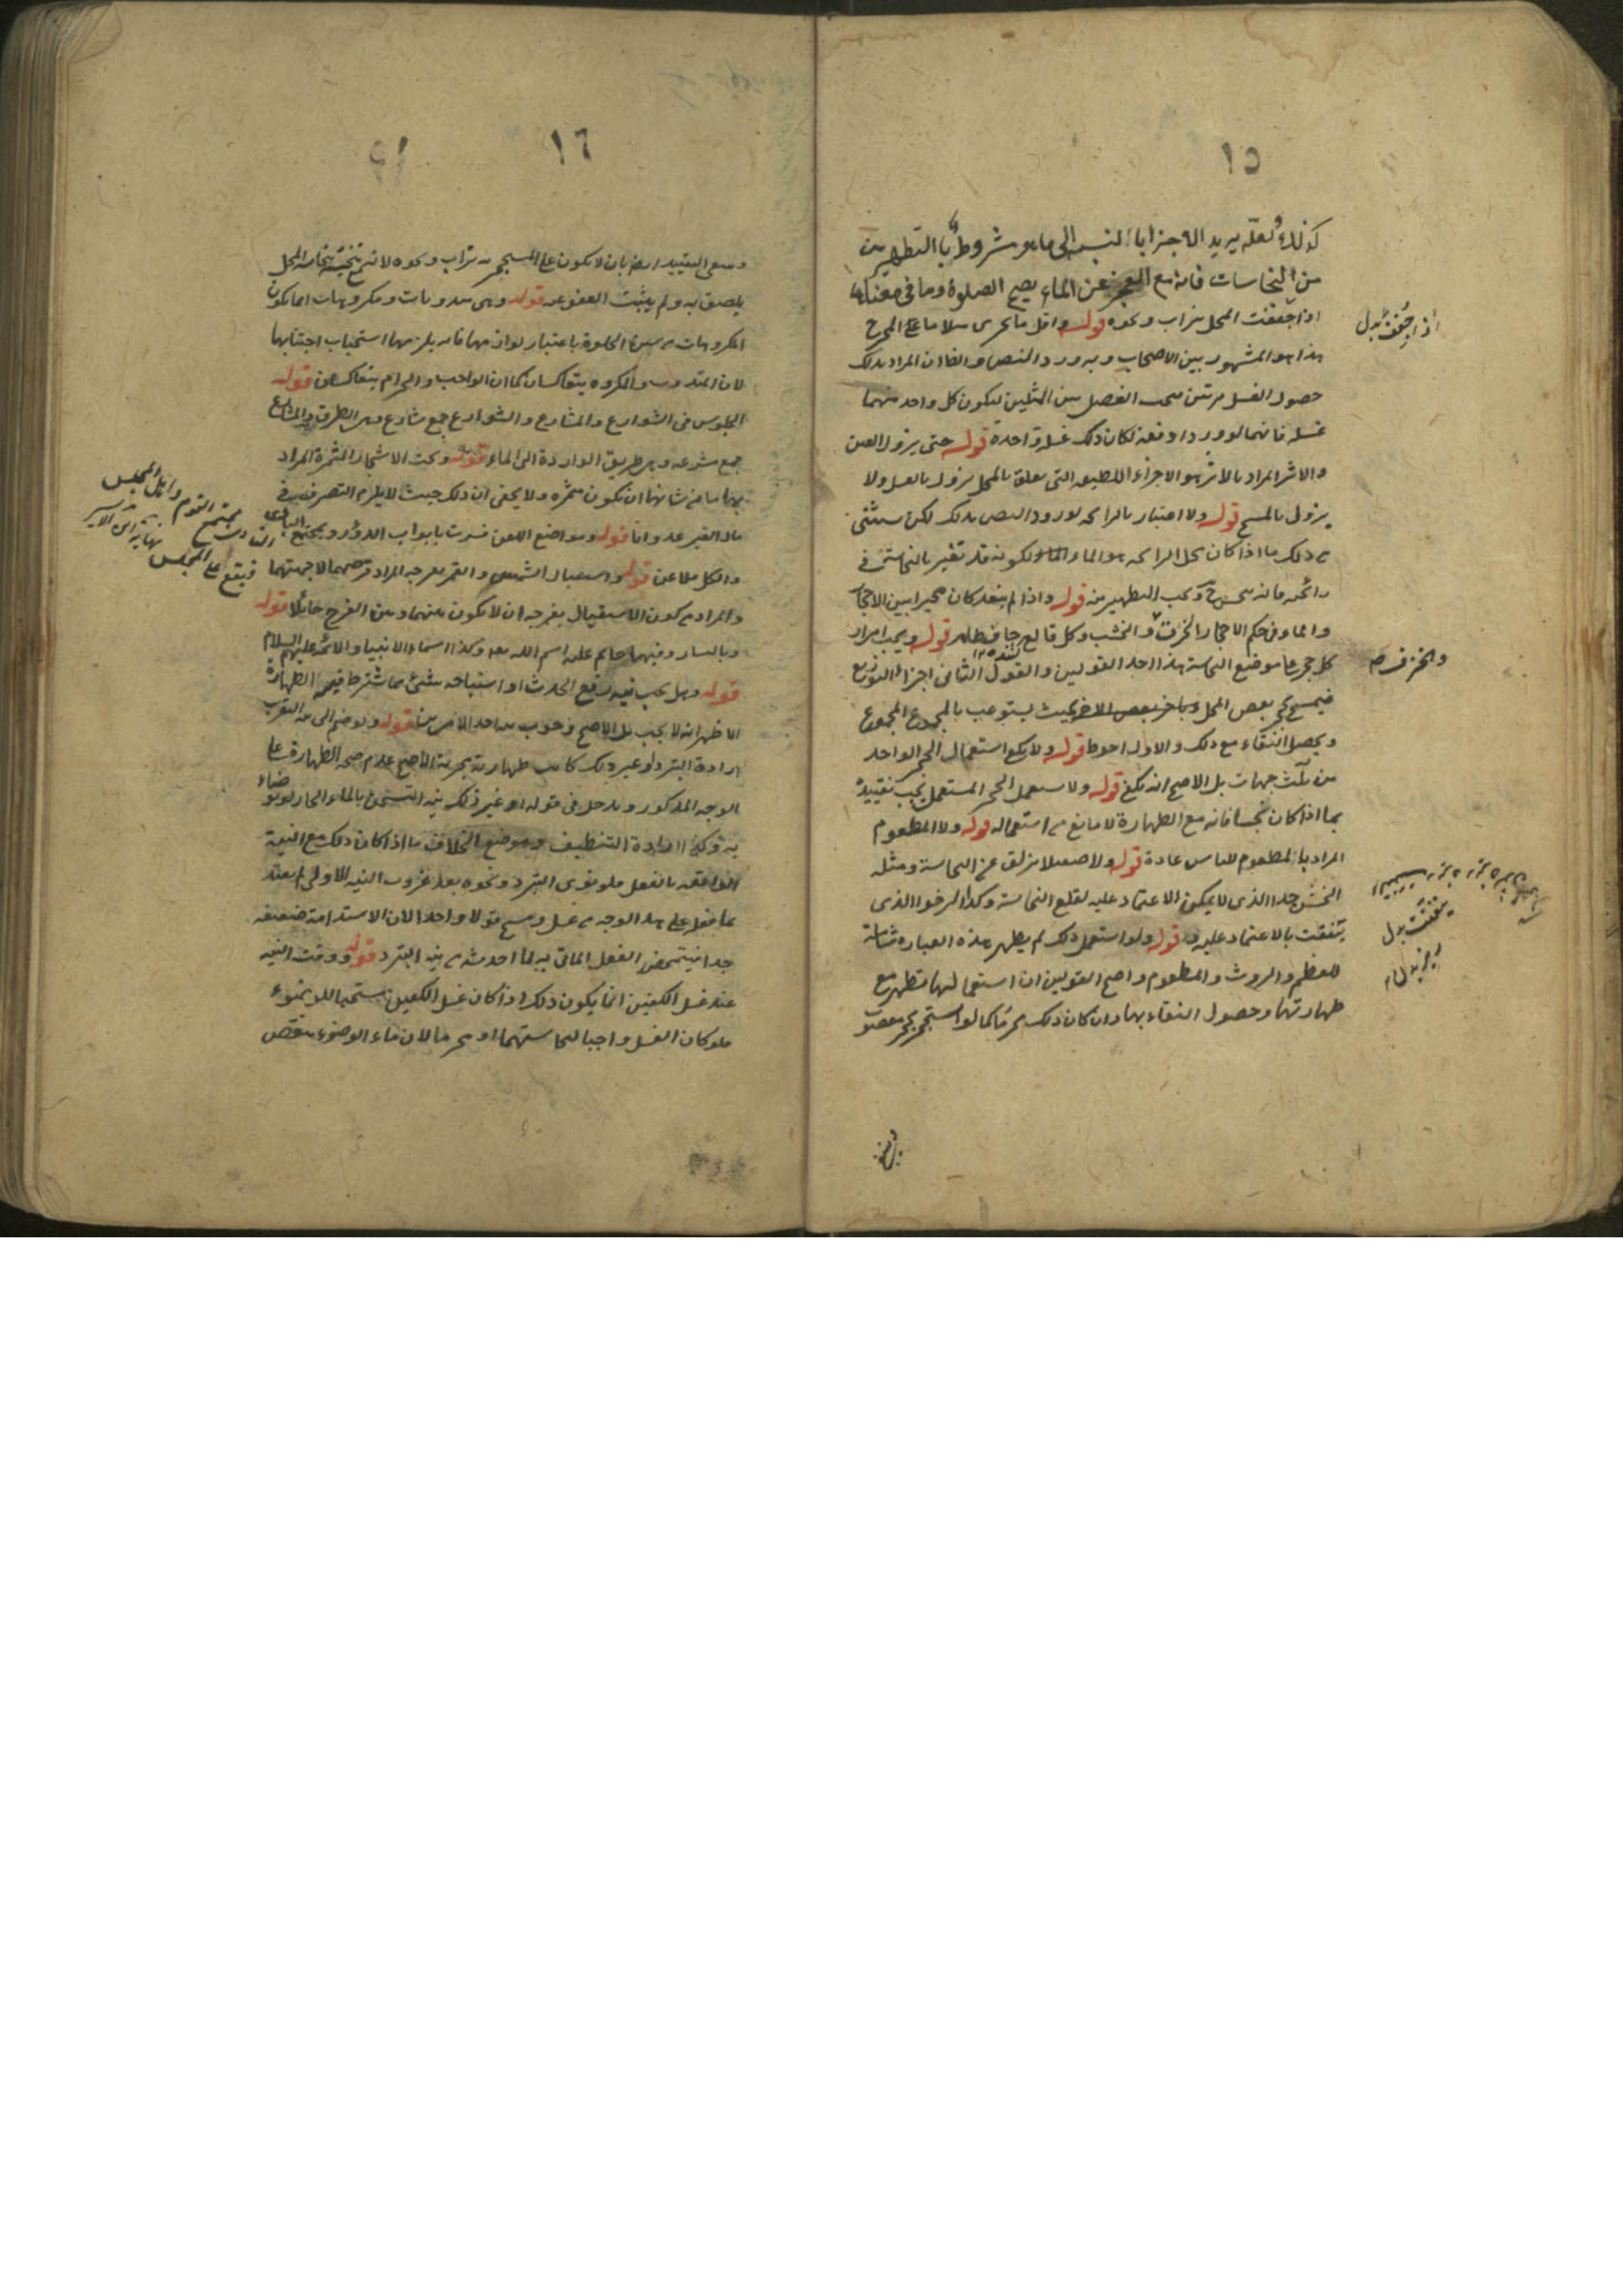 ١٥
كذلك ولعله يريد الاجزاء بالنسبة الى ما هو مشروط بالتطهير من
من النجاسات فانه مع العجز عن الماء يصح الصلوة وما في معناها
اذا جففت المحل بتراب ونحوه قوله واقل ما يجزى مثلا ما على المخرج
هذا هو المشهور بين الاصحاب وبه ورد النص والظا ان المراد بذلك
حصول الغسل مرتين يجب الفصل بين المثلين ليكون كل واحد منهما
غسلة فانهما لو وردا دفعة لكان ذلك غسلة واحدة قوله حتى يزول العين
والاثر المراد بالاثر هو الاجزاء اللطيفه التى تعلق بالمحل يزول بالغسل ولا
يزول بالمسح قوله ولا اعتبار بالرائحه لورود النص بذلك لكن يستثنى
من ذلك ما اذا كان محل الرائحه هو الماء لكونه قد تغير بالنجاسة في
رائحته فانه ينجس ح ويجب التطهير منه قوله واذا لم يتعد كان مخيرا بين الاحجار
والماء وفى حكم الاحجار الخرق والخشب وكل قالع جاف طاهر قوله ويجب امرار
كل حجر على موضع النجاسة هذا احد القولين والقول الثانى اجزاء التوزيع
فيمسح بحجر بعض المحل وباخر بعض الاخر بحيث يستوعب بالمجموع المجموع
ويحصل النقاء مع ذلك والاول احوط قوله ولا يكفى استعمال الحجر الواحد
من ثلث جهات بل الاصح انه يكفى قوله ولا يستعمل الحجر المستعمل يجب تقييده
بما اذا كان نجسا فانه مع الطهارة لا مانع من استعماله قوله ولا المطعوم
المراد بالمطعوم للناس عادة قوله ولا صيقل يزلق عن النجاسة ومثله
الخشن جدا الذى لا يمكن الاعتماد عليه لقلع النجاسة وكذا الرخو الذى
يتفتت بالاعتماد عليه قوله ولو استعمل ذلك لم يطهر هذه العبارة شاملة
للعظم والروث والمطعوم واصح القولين ان استعمالها تطهر مع
طهارتها وحصول النقاء بها وان كان ذلك محرما كما لو استجمر بحجر مغصوب
اذا جففت بدل
والخزف صح
يتفتت بدل
١٦
وينبغى التقييد ايضا بان لا يكون على المستجمر به تراب ونحوه لانه ينجس بنجاسة المحل
يلصق به ولم يثبت العفو عنه قوله وهى مندوبات ومكروهات انما يكون
المكروهات من سنن الخلوة باعتبار لوازمها فانه يلزمها استحباب اجتنابها
لان المندوب والمكروه يتعاكسان كما ان الواجب والحرام يتعاكسان قوله
الجلوس فى الشوارع والمشارع والشوارع جمع شارع وهى الطرق والمشارع
جمع مشرعة وهى طريق الواردة الى الماء قوله وتحت الاشجار المثمرة المراد
بها ما من شانها ان تكون مثمره ولا يخفى ان ذلك حيث لا يلزم التصرف فى
مال الغير عدوانا قوله ومواضع اللعن فسرت بابواب الدور ومجتمع الناس
والكل ملاعن قوله واستقبال الشمس والقمر بفرجه المراد قرصهما لا جهتهما
والمراد من كون الاستقبال بفرجه ان لا يكون بينهما وبين الفرج حائلا قوله
وباليسار وفيها خاتم عليه اسم الله تعه وكذا اسماء الانبياء والائمة عليهم السلام
قوله وهل يجب نية رفع الحدث او استباحة شئ مما يشترط فيه الطهارة
الاظهر انه لا يجب بل الاصح وجوب احد الامرين قوله ولو ضم الى نية التقرب
ارادة التبرد او غير ذلك كانت طهارته مجزية الاصح عدم صحة الطهارة على
الوجه المذكور ويدخل فى قوله او غير ذلك نية التسخن بالماء الحار لو توضاء
به وكذا ارادة التنظيف وموضع الخلاف ما اذا كان ذلك مع النية
الواقعة بالفعل فلو نوى التبرد ونحوه بعد عزوب النية الاولى لم يعتد
بما فعل على هذا الوجه من غسل ومسح قولا واحدا لان الاستدامة ضعيفة
جدا فيتمحض الفعل الماتى به لما احدثه من نية التبرد قوله ووقت النية
عند غسل الكفين انما يكون ذلك اذا كان غسل الكفين مستحبا للوضوء
فلو كان الغسل واجبا لنجاستهما او محرما لان ماء الوضوء ينقص